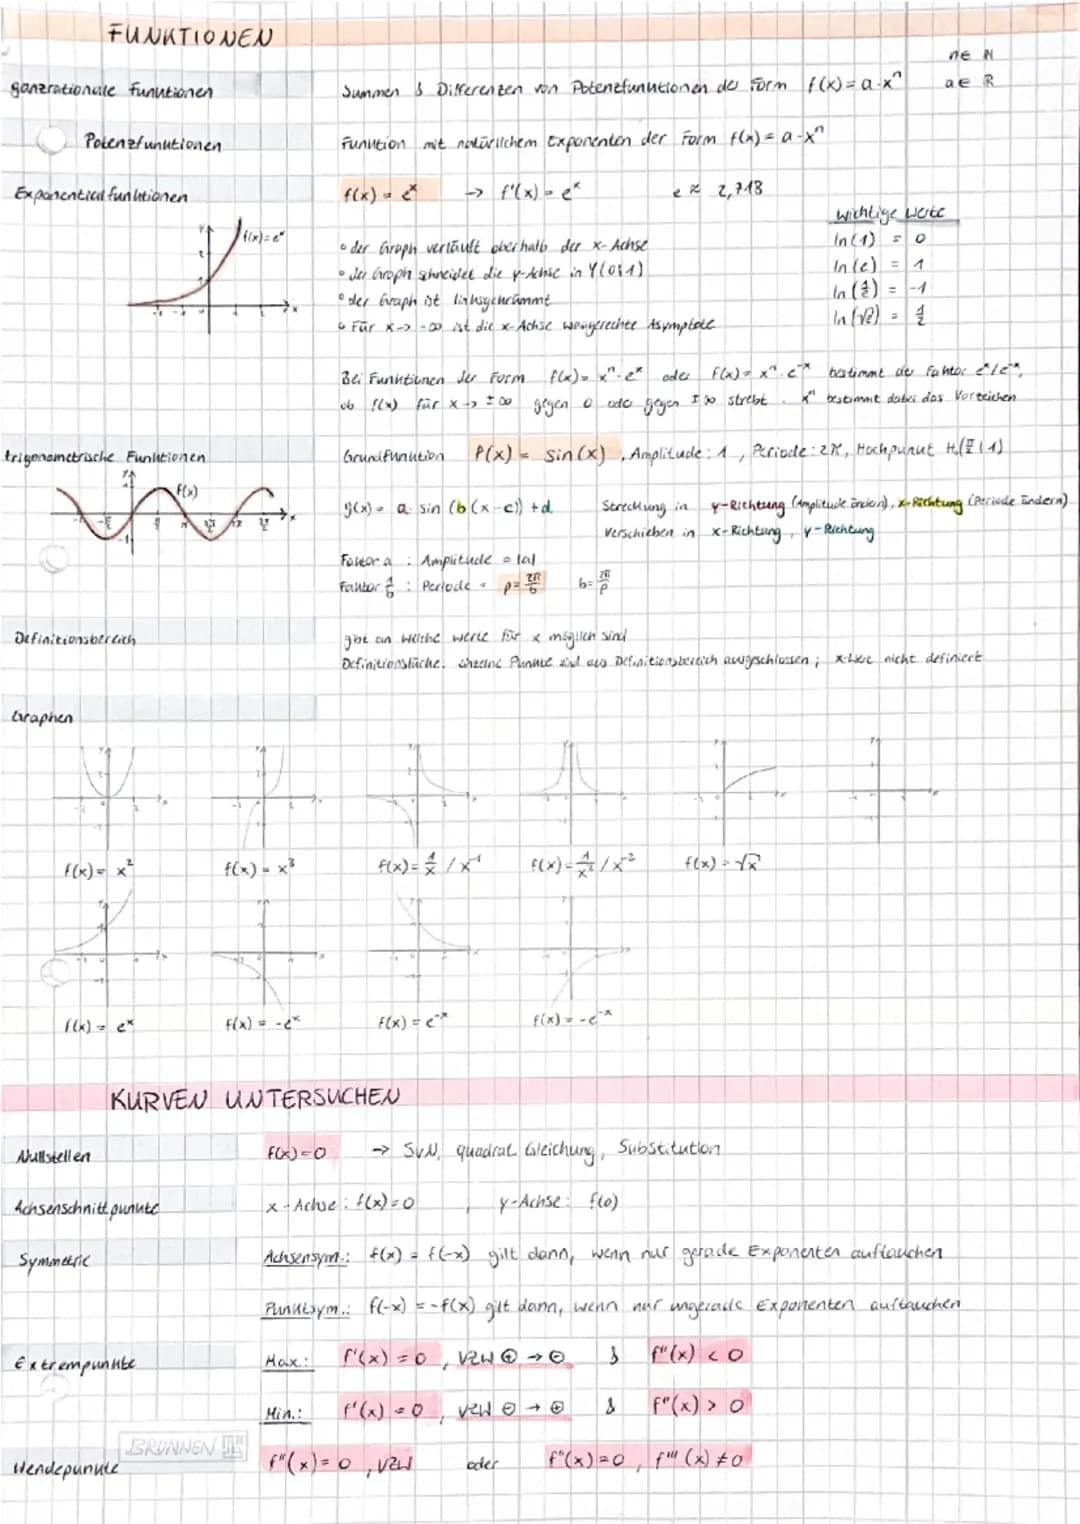 FUNKTIONEN
n ∈ N
ganzrationale Funktionen
Summen & Differenzen von Potenzfunktionen der Form f(x) = a·xⁿ
a ∈ R
Potenzfunktionen
Funktion mit natürlichem Exponenten der Form f(x) = a·xⁿ
Exponentialfunktionen
f(x) = eˣ → f'(x) = eˣ
e ≈ 2,718
f(x)=eˣ
wichtige Werte
ln(1) = 0
ln(e) = 1
ln(1/e) = -1
ln(√e) = 1/2
der Graph verläuft oberhalb der x-Achse
der Graph schneidet die y-Achse in Y(0|1)
der Graph ist linksgekrümmt
Für x → -∞ ist die x-Achse waagerechte Asymptote
Bei Funktionen der Form f(x) = xⁿ·eˣ oder f(x) = xⁿ·e⁻ˣ bestimmt der Faktor eˣ/e⁻ˣ,
ob f(x) für x → ±∞ gegen 0 oder gegen ±∞ strebt. xⁿ bestimmt dabei das Vorzeichen
trigonometrische Funktionen
Grundfunktion f(x) = sin(x), Amplitude: 1, Periode: 2π, Hochpunkt H(π/2|1)
f(x)
g(x) = a·sin(b(x-c))+d
Streckung in y-Richtung (Amplitude ändern), x-Richtung (Periode ändern)
Verschieben in x-Richtung, y-Richtung
Faktor a : Amplitude = |a|
Faktor 1/b : Periode = p=2π/b b=2π/p
Definitionsbereich
gibt an welche Werte für x möglich sind
Definitionslücke: einzelne Punkte sind aus Definitionsbereich ausgeschlossen; x-Wert nicht definiert
Graphen
f(x) = x² f(x) = x³ f(x) = 1/x / x⁻¹ f(x) = 1/x² / x⁻² f(x) = √x
f(x) = eˣ f(x) = -eˣ f(x) = e⁻ˣ f(x) = -e⁻ˣ
KURVEN UNTERSUCHEN
Nullstellen
f(x)=0 → SvN, quadrat. Gleichung, Substitution
Achsenschnittpunkte
x-Achse: f(x)=0 , y-Achse: f(0)
Symmetrie
Achsensym.: f(x) = f(-x) gilt dann, wenn nur gerade Exponenten auftauchen
Punktsym.: f(-x) = -f(x) gilt dann, wenn nur ungerade Exponenten auftauchen
Extrempunkte
Max.: f'(x) = 0, VZW ⊕ → ⊖ & f''(x) < 0
Min.: f'(x) = 0, VZW ⊖ → ⊕ & f''(x) > 0
BRUNNEN
Wendepunkte
f''(x) = 0, VZW oder f''(x) = 0, f'''(x) ≠ 0